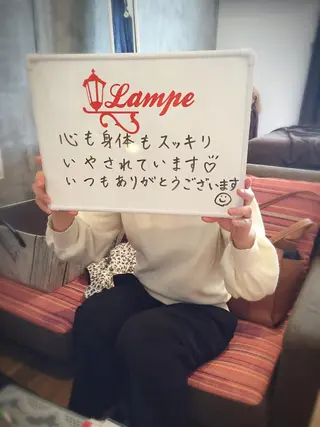 Lampe
心も身体もスッキリ
いやされています♡
いつもありがとうございます